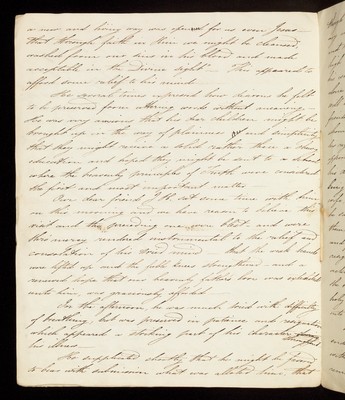 a new and living way was opened for us even Jesus —
that through faith in Him we might be cleansed
washed from our sins in his blood and made
acceptable in the divine sight — This appeared to
afford some relief to his mind.
He several times expressed how desirous he felt
to be preserved from uttering words without meaning —
He was very anxious that his dear children might be
brought up in the way of plainness and simplicity
that they might receive a solid rather than a shewy
education and hoped they might be sent to a school
where the heavenly principles of Truth were considered
the first and most important matter —
Our dear friend sat some time with him
in this morning and we have reason to believe this
visit and the preceding one were blest and were
thro mercy rendered instrumental to the relief and
consolation of his tried mind — that the weak hands
were lifted up and the feeble knees strengthened and a
renewed hope that our heavenly Father's love was extended
unto him, was graciously afforded.
In the afternoon, he was much tried with difficulty
of breathing, but was preserved in patience and resignation
which appeared a striking part of his character throughout
his illness —
He supplicated shortly that he might be favored
to bear with submission what was allotted him, that